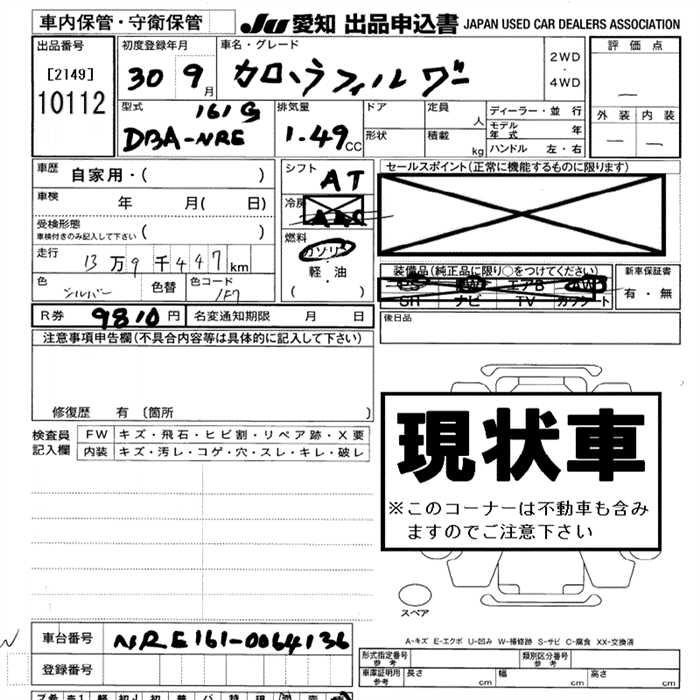 車内保管・守衛保管
JU 愛知 出品申込書 JAPAN USED CAR DEALERS ASSOCIATION
出品番号 初度登録年月 車名・グレード 評価点
[2149] 30 9月 カローラフィルダー 2WD・4WD
10112
型式 161G 排気量 ドア 定員 人 ディーラー・並行 外装 内装
DBA-NRE 1.49CC 形状 積載 kg モデル年式 年
ハンドル 左・右
車歴 自家用・( ) シフト AT セールスポイント(正常に機能するものに限ります)
車検 年 月( 日) 冷房 AAC
受検形態 ( )
車検付きのみ記入して下さい
燃料 ガソリン
走行 13万9千447km 軽・油
装備品(純正品に限り○をつけてください) 新車保証書
色 シルバー 色替 色コード 1F7 ( )
PS PW エアB AW 有・無
SR ナビ TV カワシート
R券 9810円 名変通知期限 月 日 後日品
注意事項申告欄(不具合内容等は具体的に記入して下さい)
修復歴 有 〔箇所 〕
検査員記入欄 FW キズ・飛石・ヒビ割・リペア跡・X要
内装 キズ・汚レ・コゲ・穴・スレ・キレ・破レ
現状車
※このコーナーは不動車も含み
ますのでご注意下さい
スペア
A-キズ E-エクボ U-凹み W-補修跡 S-サビ C-腐食 XX-交換済
車台番号 NRE161-0064136
登録番号
形式指定番号 参考 類別区分番号 参考
車庫証明用 参考 長さ cm 幅 cm 高さ cm